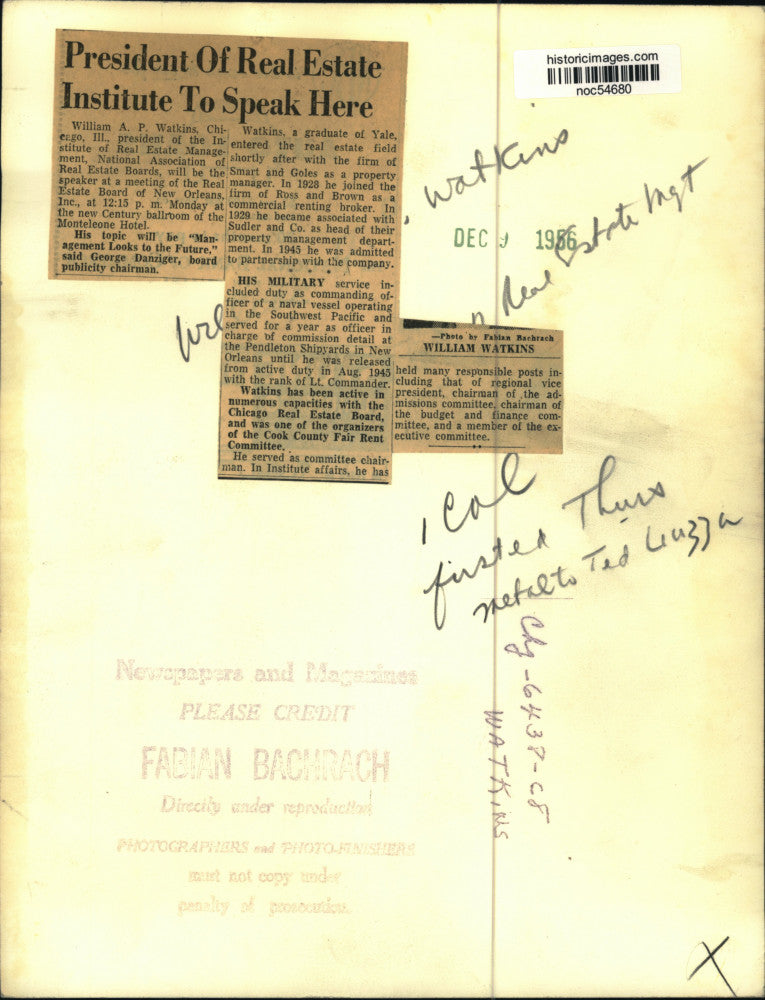 President Of Real Estate
Institute To Speak Here
William A. P. Watkins, Chi-
cago, Ill., president of the In-
stitute of Real Estate Manage-
ment, National Association of
Real Estate Boards, will be the
speaker at a meeting of the Real
Estate Board of New Orleans,
Inc., at 12:15 p. m. Monday at
the new Century ballroom of the
Monteleone Hotel.
His topic will be "Man-
agement Looks to the Future,"
said George Danziger, board
publicity chairman.
Watkins, a graduate of Yale,
entered the real estate field
shortly after with the firm of
Smart and Goles as a property
manager. In 1928 he joined the
firm of Ross and Brown as a
commercial renting broker. In
1929 he became associated with
Sudler and Co. as head of their
property management depart-
ment. In 1945 he was admitted
to partnership with the company.
* * *
HIS MILITARY service in-
cluded duty as commanding of-
ficer of a naval vessel operating
in the Southwest Pacific and
served for a year as officer in
charge of commission detail at
the Pendleton Shipyards in New
Orleans until he was released
from active duty in Aug. 1945
with the rank of Lt. Commander.
Watkins has been active in
numerous capacities with the
Chicago Real Estate Board,
and was one of the organizers
of the Cook County Fair Rent
Committee.
He served as committee chair-
man. In Institute affairs, he has
—Photo by Fabian Bachrach
WILLIAM WATKINS
held many responsible posts in-
cluding that of regional vice
president, chairman of the ad-
missions committee, chairman of
the budget and finance com-
mittee, and a member of the ex-
ecutive committee.
historicimages.com
noc54680
Watkins
DEC 9 1956
Real Estate Mgt
1 Col
Thurs
to Ted Liuzza
Chg-6437-C8
WATKINS
Newspapers and Magazines
PLEASE CREDIT
FABIAN BACHRACH
Directly under reproduction
PHOTOGRAPHERS and PHOTO-FINISHERS
must not copy under
penalty of prosecution.
X